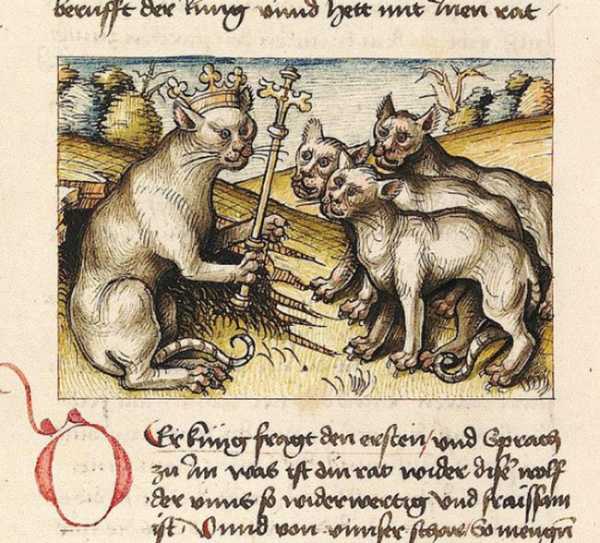 berufft der kung vnnd hett mit Inen rat
DEr kung fragt den ersten / vnd Sprach
zu Im was ist din rat wider dise wolf
der vnns so widerwertig vnd fraissam
ist / Vnnd von vnnser schar / So mengn